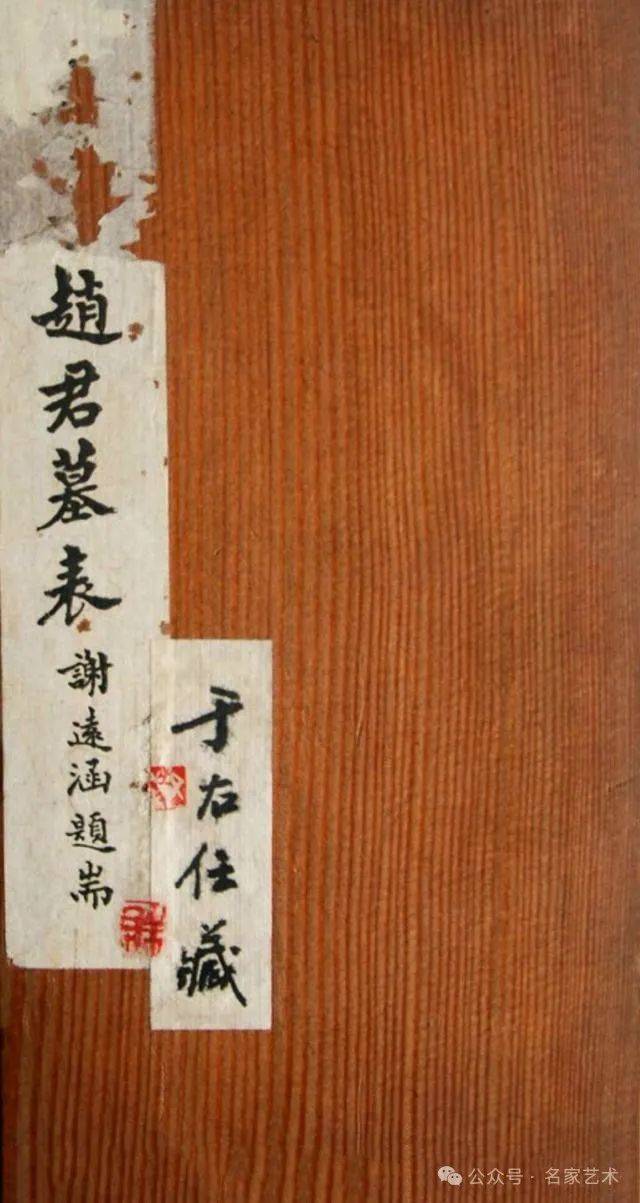 趙君墓表
謝遠涵題耑
于右任藏
公众号·名家艺术